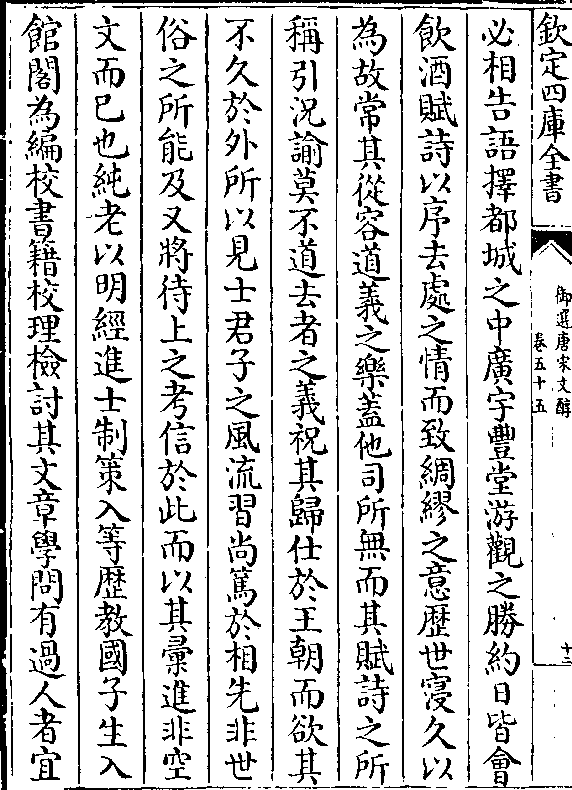 欽定四庫全書
御選唐宋文醇
卷五十五
十三
必相告語擇都城之中廣宇豐堂游觀之勝約日皆會
飲酒賦詩以序去處之情而致綢繆之意歷世寖久以
為故常其從容道義之樂蓋他司所無而其賦詩之所
稱引況諭莫不道去者之義祝其歸仕於王朝而欲其
不久於外所以見士君子之風流習尚篤於相先非世
俗之所能及又將待上之考信於此而以其彙進非空
文而已也純老以明經進士制策入等歷教國子生入
館閣為編校書籍校理檢討其文章學問有過人者宜